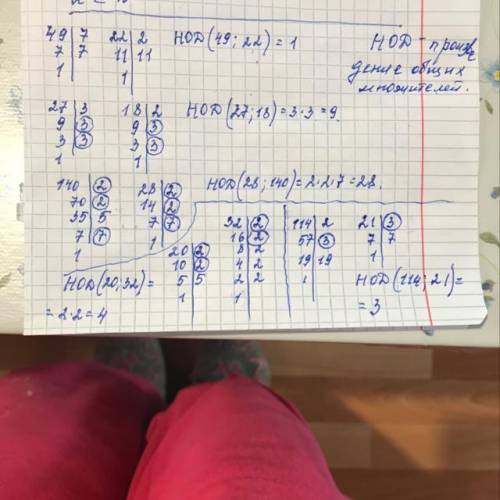 49 | 7   22 | 2   НОД(49; 22) = 1
7 | 7   11 | 11
1 |   1 |
НОД - произве
дение общих
множителей.
27 | 3   18 | 2   НОД(27; 18) = 3·3 = 9.
9 | 3   9 | 3
3 | 3   3 | 3
1   1
140 | 2   28 | 2   НОД(28; 140) = 2·2·7 = 28.
70 | 2   14 | 2
35 | 5   7 | 7
7 | 7   1
1
20 | 2   32 | 2   114 | 2   21 | 3
10 | 2   16 | 2   57 | 3   7 | 7
5 | 5   8 | 2   19 | 19   1
1   4 | 2   1
2 | 2
1
НОД(20, 32) =
= 2·2 = 4
НОД(114; 21) =
= 3